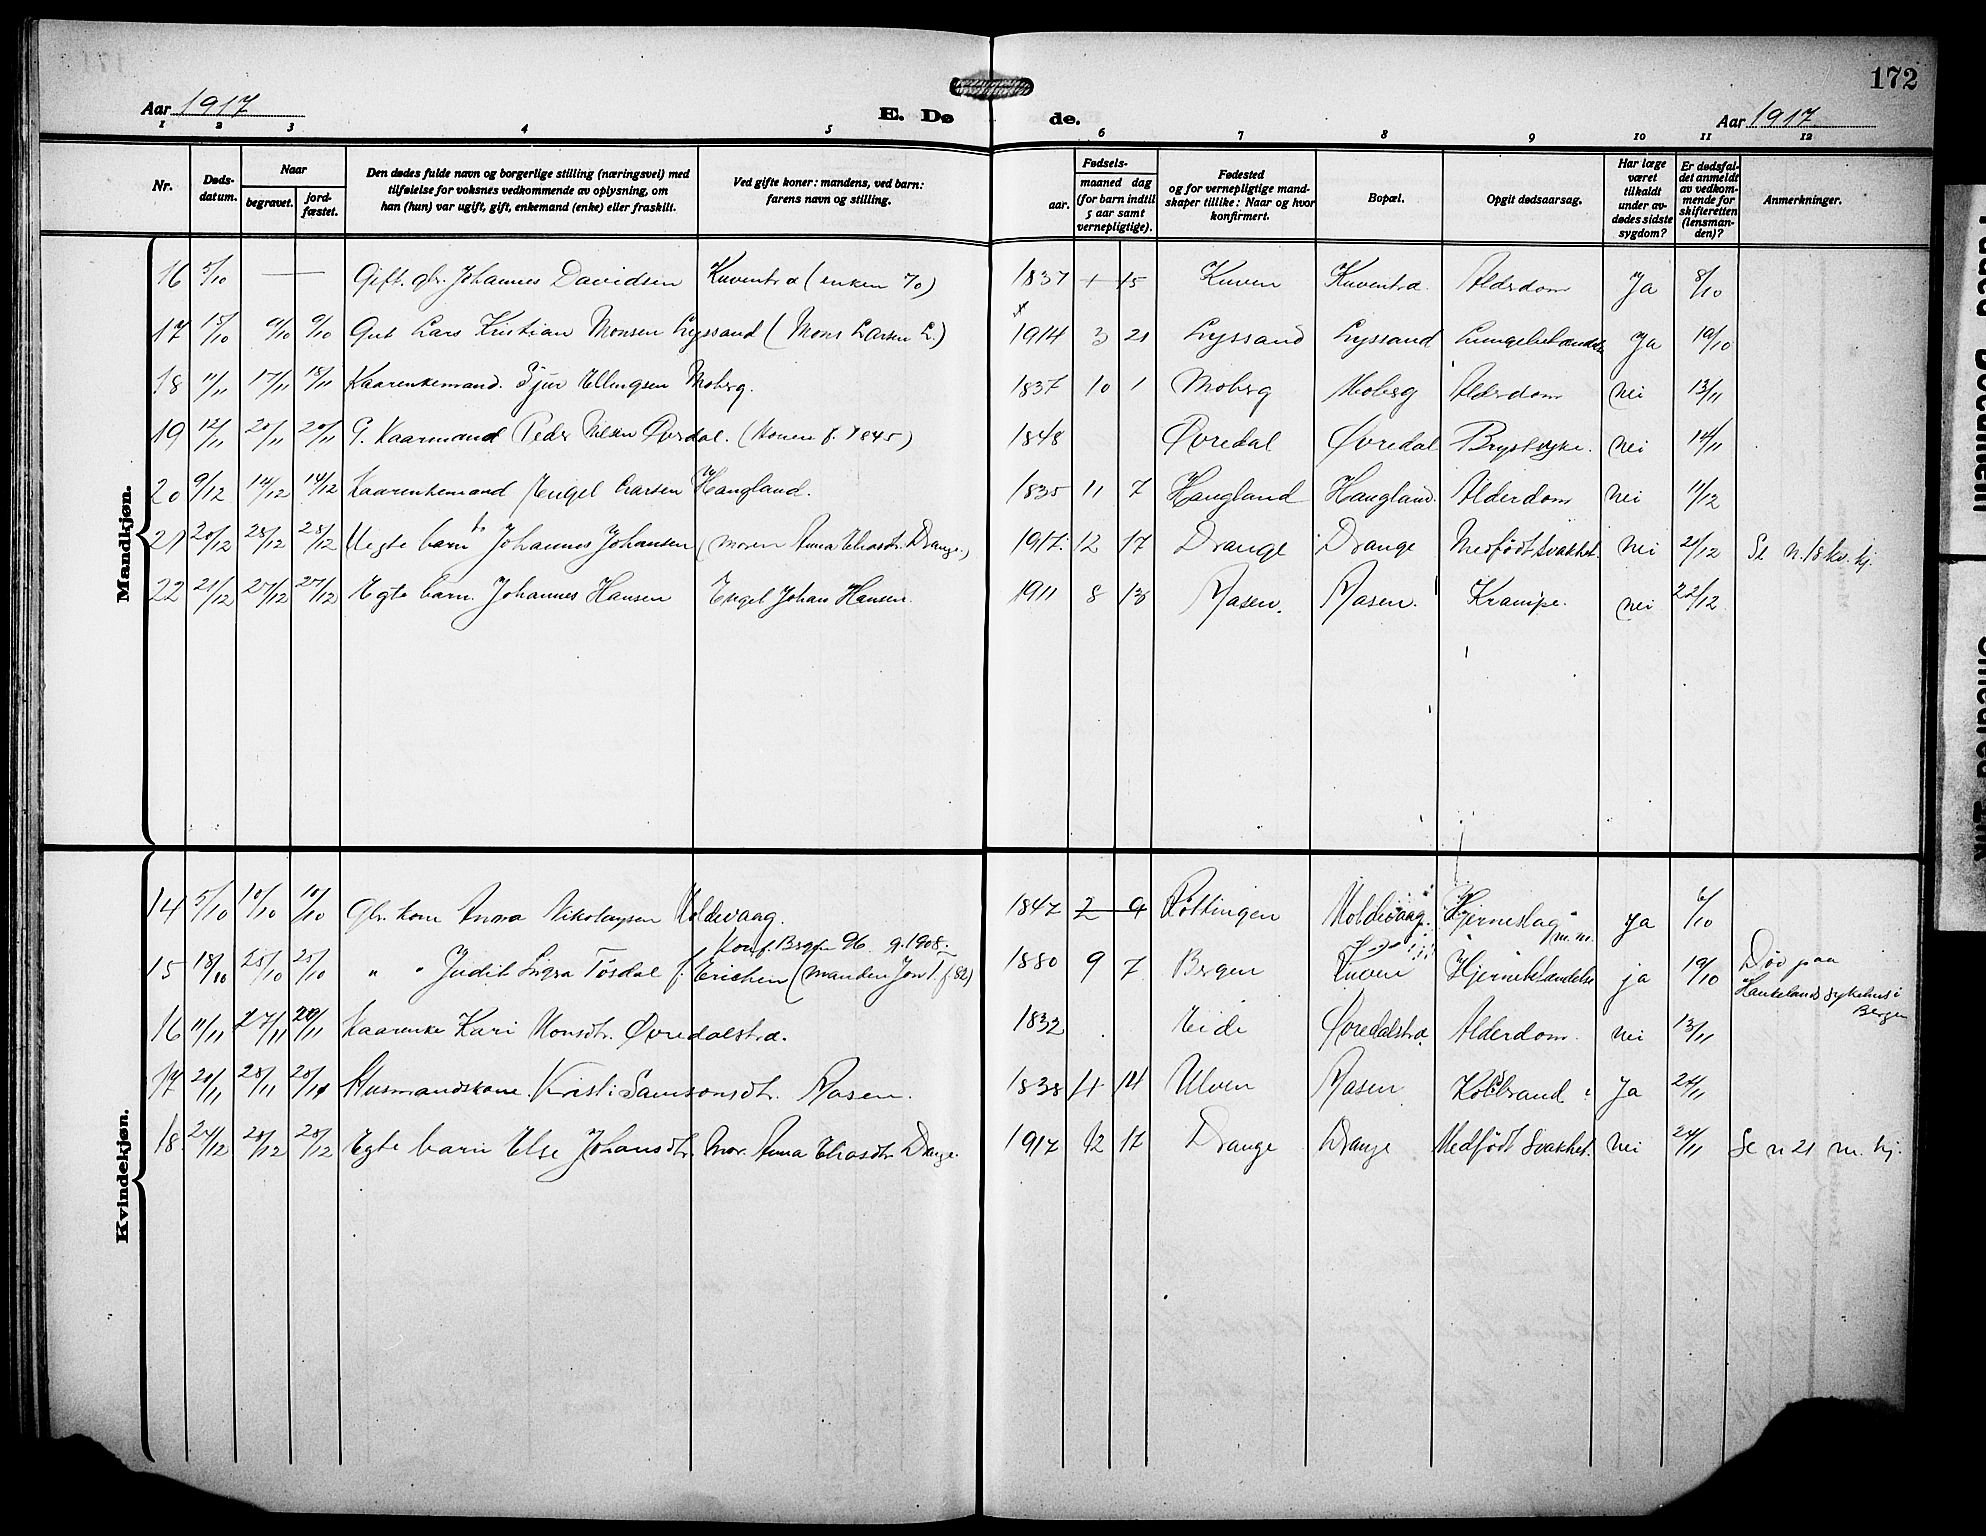 172
Aar 1917
E. Dø de.
Aar 1917
1 2 3 4 5 6 7 8 9 10 11 12
Nr.
Døds-
datum.
Naar
begravet.
jord-
fæstet.
Den dødes fulde navn og borgerlige stilling (næringsvei) med
tilføielse for voksnes vedkommende av oplysning, om
han (hun) var ugift, gift, enkemand (enke) eller fraskilt.
Ved gifte koner: mandens, ved barn:
farens navn og stilling.
Fødsels-
aar.
maaned dag
(for barn indtil
5 aar samt
vernepligtige).
Fødested
og for vernepligtige mand-
skaper tillike: Naar og hvor
konfirmert.
Bopæl.
Opgit dødsaarsag.
Har læge
været
tilkaldt
under av-
dødes sidste
sygdom?
Er dødsfal-
det anmeldt
av vedkom-
mende for
skifteretten
(lensman-
den)?
Anmerkninger.
Mandkjøn.
16 5/10 — Gift. gbr. Johannes Davidsen Kuventræ (enken 70) 1837 + 15 Kuven Kuventræ Alderdom Ja 8/10
17 15/10 Gut Lars Kristian Monsen Lyssand (Mons Larsen L.) 1914 3 21 Lyssand Lyssand Lungebetændelse Ja 19/10
18 11/11 17/11 18/11 Kaarenkemand. Sjur Ellingsen Moberg. 1837 10 1 Moberg Moberg Alderdom nei 13/11
19 12/11 20/11 20/11 G. Kaarmand Peder Nilsen Øvredal. (Konen f. 1845) 1848 Øvredal Øvredal Brystsyke. nei 14/11
20 9/12 14/12 14/12 Kaarenkemand Engel Larsen Haugland. 1835 11 7 Haugland Haugland. Alderdom nei 11/12
21 20/12 28/12 28/12 Uegte barn Johannes Johansen (moren Anna Eliasdtr. Drange.) 1917. 12 17 Drange Drange Medfødt Svakhet. nei 21/12 Se n. 18 kv. kj.
22 21/12 27/12 27/12 Egte barn Johannes Hansen Engel Johan Hansen. 1911 8 13 Røsen. Røsen. Krampe. nei 22/12
Kvindekjøn.
14 5/10 10/10 10/10 Gbr. kone Anna Nikolaysen Moldevaag. 1847 2 9 Røttingen Moldevaag. Hjerneslag m.m. Ja 6/10
Konf. Bergen 96. g. 1908.
15 18/10 25/10 25/10 " " Judit Signa Tøsdal f. Erichsen (manden Jon T. f 82) 1880 9 7 Bergen Kuven Hjernebetændelse ja 19/10 Død paa
Haukelands sykehus i
Bergen
16 11/11 27/11 Kaarenke Kari Monsdtr. Øvredalstræ. 1832 Eide Øvredalstræ. Alderdom. nei 13/11
17 20/11 28/11 28/11 Husmandskone. Kristi Samsonsdtr. Røsen. 1838 14 Ulven Røsen Kolbrand Ja 24/11
18. 24/12 28/12 28/12 Egte barn Else Johansdtr. Mor. Anna Eliasdtr Drange. 1917 12 17 Drange Drange Medfødt Svakhet. nei 24/11 Se n 21 m. kj.